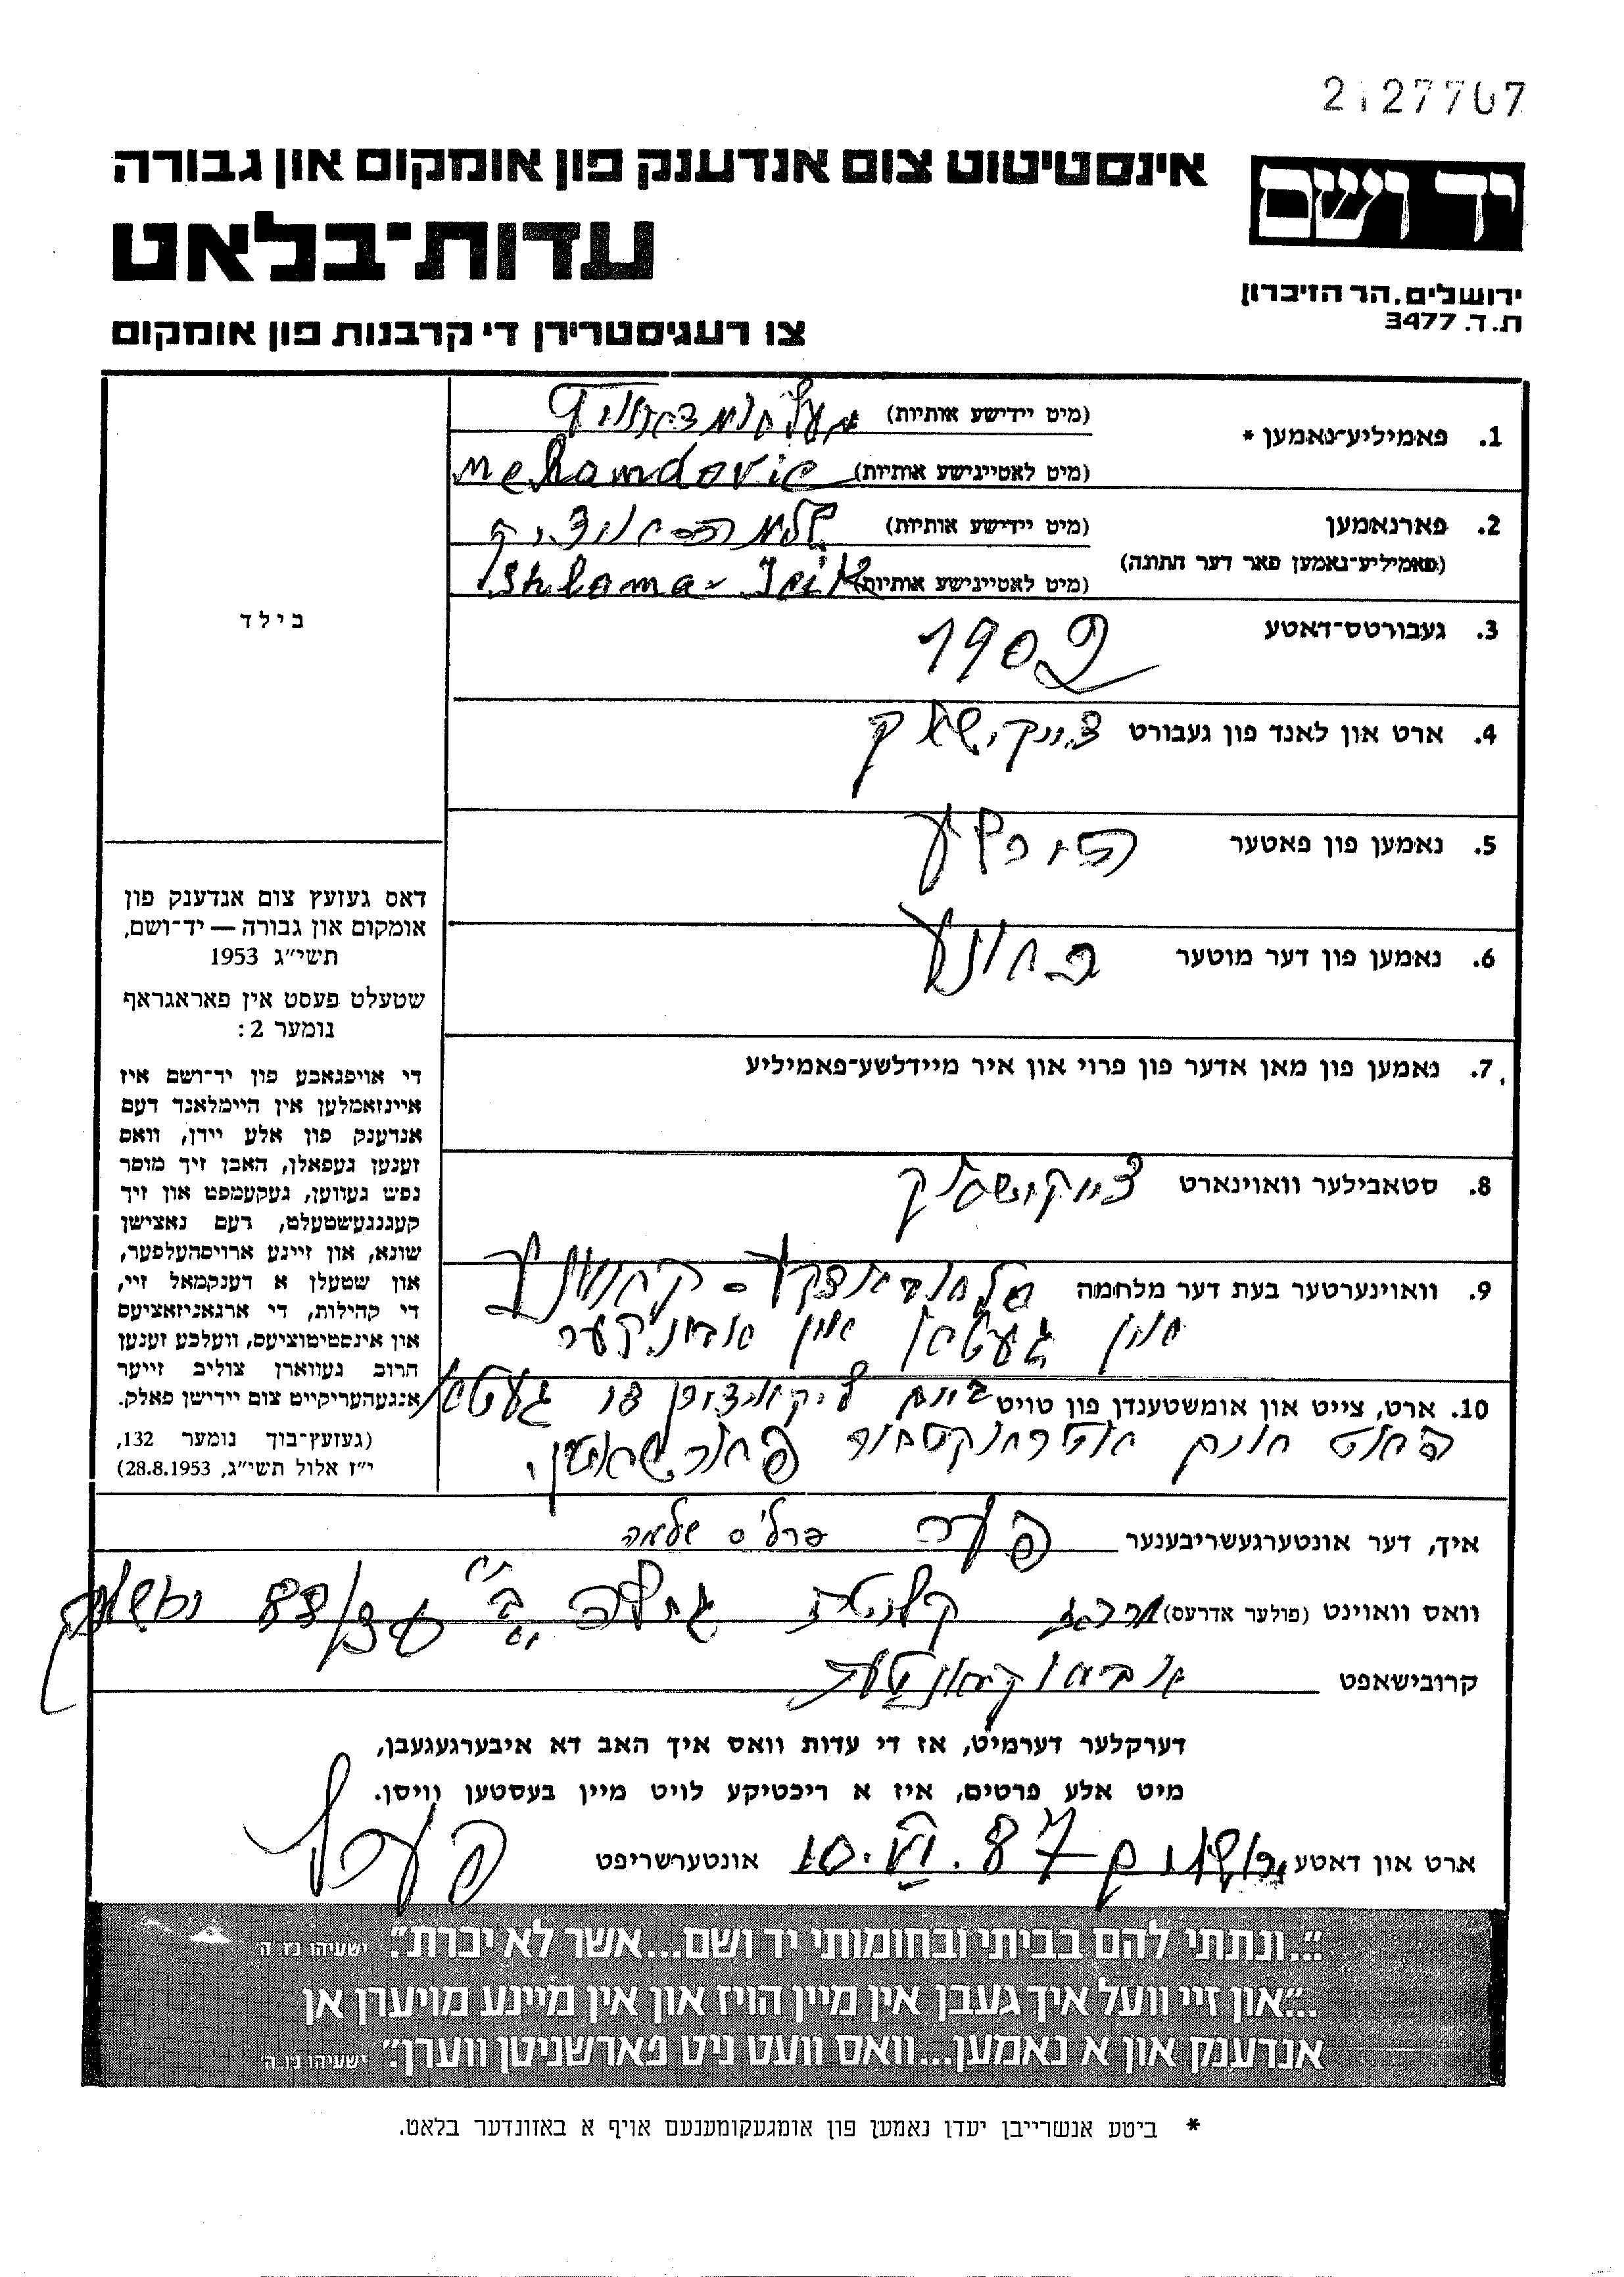 2127707
אינסטיטוט צום אנדענק פון אומקום און גבורה
יד ושם
עדות־בלאט
ירושלים, הר הזיכרון
ת. ד. 3477
צו רעגיסטרירן די קרבנות פון אומקום
1. פאמיליע־נאמען *
(מיט יידישע אותיות)
(מיט לאטיינישע אותיות) Mehamdovic
2. פארנאמען
(פאמיליע־נאמען פאר דער חתונה)
(מיט יידישע אותיות)
(מיט לאטיינישע אותיות) Shloma - Icik
בילד
3. געבורטס־דאטע 1902
4. ארט און לאנד פון געבורט
5. נאמען פון פאטער
6. נאמען פון דער מוטער
7. נאמען פון מאן אדער פון פרוי און איר מיידלשע־פאמיליע
8. סטאבילער וואוינארט
9. וואוינערטער בעת דער מלחמה
און געטא אין
10. ארט, צייט און אומשטענדן פון טויט ביים ליקווידירן די געטא
דאס געזעץ צום אנדענק פון
אומקום און גבורה — יד־ושם,
תשי״ג 1953
שטעלט פעסט אין פאראגראף
נומער 2:
די אויפגאבע פון יד־ושם איז
איינזאמלען אין היימלאנד דעם
אנדענק פון אלע יידן, וואס
זענען געפאלן, האבן זיך מוסר
נפש געווען, געקעמפט און זיך
קעגנגעשטעלט, דעם נאצישן
שונא, און זיינע ארויסהעלפער,
און שטעלן א דענקמאל זיי,
די קהילות, די ארגאניזאציעס
און אינסטיטוציעס, וועלכע זענען
חרוב געווארן צוליב זייער
אנגעהעריקייט צום יידישן פאלק.
(געזעץ־בוך נומער 132,
י״ז אלול תשי״ג, 28.8.1953)
איך, דער אונטערגעשריבענער פערל פרלס שלמה
וואס וואוינט (פולער אדרעס)
קרובישאפט
דערקלער דערמיט, אז די עדות וואס איך האב דא איבערגעגעבן,
מיט אלע פרטים, איז א ריכטיקע לויט מיין בעסטען וויסן.
ארט און דאטע 10.VI.87 אונטערשריפט פערל
״...ונתתי להם בביתי ובחומותי יד ושם...אשר לא יכרת״. ישעיהו נו, ה׳
״...און זיי וועל איך געבן אין מיין הויז און אין מיינע מויערן אן
אנדענק און א נאמען...וואס וועט ניט פארשניטן ווערן״. ישעיהו נו, ה׳
* ביטע אנשרייבן יעדן נאמען פון אומגעקומענעם אויף א באזונדער בלאט.